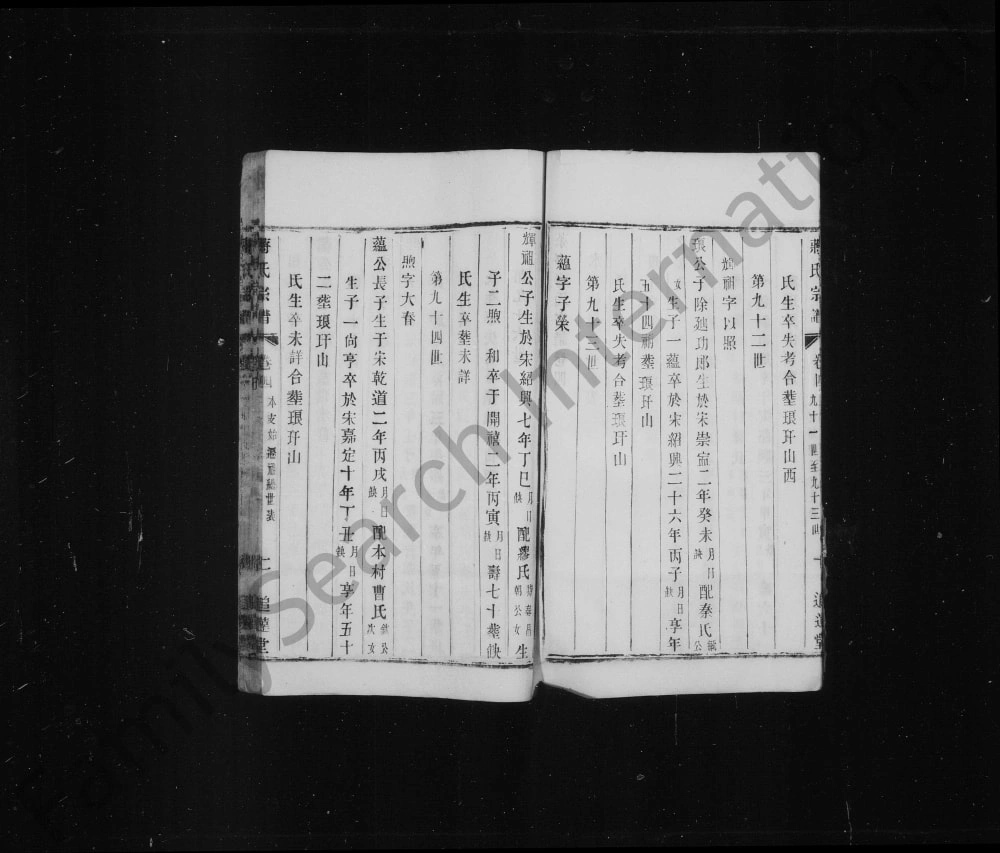 蔣氏宗譜 卷四 九十一世至九十三世 一 追遠堂
氏生卒失考合塟琅玕山西
第九十二世
輝祖字以照
琅公子除廸功郎生於宋崇寧二年癸未月日缺配秦氏公
女生子一蘊卒於宋紹興二十六年丙子月日缺享年
五十四歲塟琅玕山
氏生卒失考合塟琅玕山
第九十三世
蘊字子榮
輝祖公子生於宋紹興七年丁巳月日缺配繆氏朝公女生
子二煦 和卒于開禧二年丙寅月日缺壽七十塟缺
氏生卒塟未詳
第九十四世
煦字大春
蘊公長子生于宋乾道二年丙戌月日缺配本村曹氏公次女
生子一尙亨卒於宋嘉定十年丁丑月日缺享年五十
二塟琅玕山
氏生卒未詳合塟琅玕山
蔣氏宗譜 卷四 本支始遷派總世表 二 追遠堂